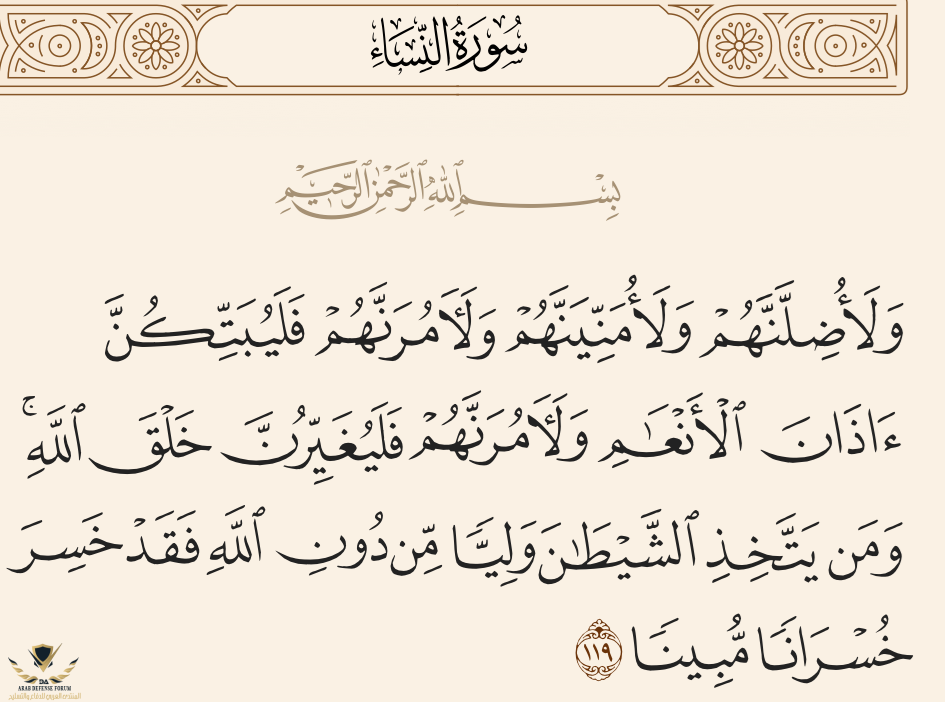 سُورَةُ النِّسَاءِ
بِسْمِ ٱللَّهِ ٱلرَّحْمَٰنِ ٱلرَّحِيمِ
وَلَأُضِلَّنَّهُمْ وَلَأُمَنِّيَنَّهُمْ وَلَءَامُرَنَّهُمْ فَلَيُبَتِّكُنَّ
ءَاذَانَ ٱلْأَنْعَٰمِ وَلَءَامُرَنَّهُمْ فَلَيُغَيِّرُنَّ خَلْقَ ٱللَّهِۚ
وَمَن يَتَّخِذِ ٱلشَّيْطَٰنَ وَلِيًّا مِّن دُونِ ٱللَّهِ فَقَدْ خَسِرَ
خُسْرَانًا مُّبِينًا ١١٩
DA
ARAB DEFENSE FORUM
المنتدى العربي للدفاع والتسليح